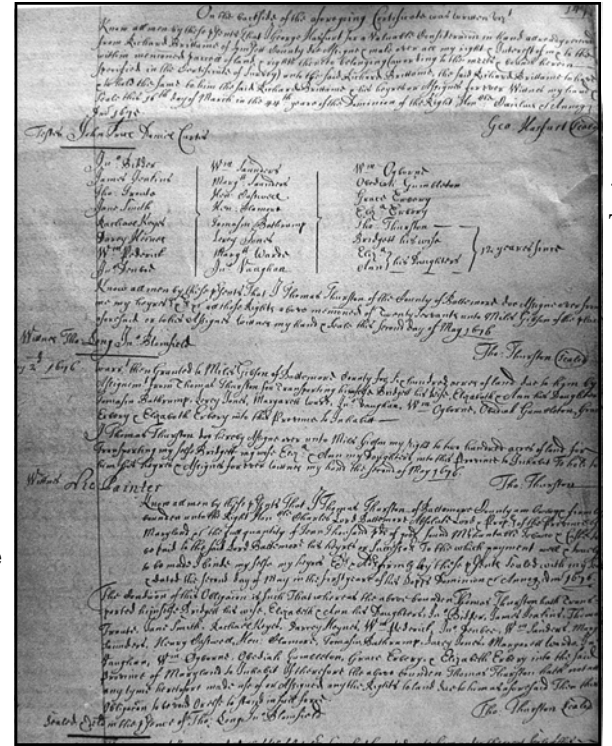 On the backside of the aforegoing Certificate was written vizt
Know all men by these presents that I George Harfurt for a Valuable Consideracion in hand already received
from Richard Brittaine of County doe Assigne & make over all my right & Interest of in & to the
within mentioned parcell of land & right thereto belonging (according to the metes & bounds herein
specified in the Certificate of Survey) unto the said Richard Brittaine, the said Richard Brittaine to have
& to hold the same to him the said Richard Brittaine & his heyres or Assignes for ever Witnes my hand &
Seale this 16th day of March in the 44th yeare of the Dominion of the Right Honble Cæcilius &c Annoq
Dni 1675
Geo: Harfurt Seale
Testes John
Jno Bidder
James Jenkins
Tho: Trento
Jane Smith
Rachael Keyes
Darcy Heives
Wm Pederick
Jno Benbe
Wm Saunders
Margt Saunders
Hen: Eastwell
Hen: Stamore
Tomasin Bathramp
Lucy Jones
Margtt Warde
Jno Vaughan
Wm Ogborne
Obediah Gumbleton
Grace Erbery
Eliza Erbery
Tho: Thurston
Bridgett his wife
Eliza
Ann } his Daughters
12 yeares since
Know all men by these psents That I Thomas Thurston of the County of Baltemore doe Assigne over from
me my heyres &c all those Rights above menconed of Twenty Servants unto Miles Gibson of the place
aforesaid or to his Assignes Witnes my hand & Seale this second day of May 1676
Tho: Thurston Seale
Witnes Tho: Long Jno Blomfield
1676
warrt then Granted to Miles Gibson of Baltemore County for six hundred acres of land due to him by
Assignmt from Thomas Thurston for Transporting himselfe Bridgett his wife, Elizabeth & Ann his Daughters
Tomasin Bathramp, Lucy Jones, Margarett Ward, Jno Vaughan, Wm Ogborne, Obediah Gumbleton, Grace
Erbery & Elizabeth Erbery into this Province to Inhabit
I Thomas Thurston doe hereby Assigne over unto Miles Gibson my Right to two hundred acres of land for
Transporting my selfe Bridgett my wife Eliza & Ann my Daughters into this Province to Inhabit To be to
him his heyres & Assignes for ever Witnes my hand the second of May 1676
Tho: Thurston
Witnes Painter
Know all men by these psents That I Thomas Thurston of Baltemore County am
bounden unto the Right Honble Charles Lord Baltemore Absolute Lord & Propr of the Province of
Maryland of the full quantity of Tenn Thousand pds of good sound Merchantable Tobacco &
to be paid to the said Lord Baltemore his heyres or Successors To the which payment well & truely
to be made I binde my selfe my heyres Exrs & Admrs firmly by these psents Sealed with my Seale
& dated the second day of May in the first yeare of his Lopps Dominion & Annoq Dom 1676
The Condicion of this Obligacion is such That whereas the above bounden Thomas Thurston hath Trans
ported himselfe Bridgett his wife, Elizabeth & Ann his Daughters Jno Bidder, James Jenkins, Thomas
Trento, Jane Smith, Rachael Keyes, Darcy Heives, Wm Pederick, Jno Benbe, Wm Sanders, Mary
Saunders, Henry Eastwell, Hen: Stamore, Tomasin Bathramp, Lucy Jones, Margarett Warde, Jno
Vaughan, Wm Ogborne, Obediah Gumbleton, Grace Erbery, & Elizabeth Erbery into the said
Province of Maryland to Inhabit If therefore the above bounden Thomas Thurston hath not at
any tyme heretofore made use of or Assigned any the Rights to land due to him as aforesaid Then this
Obligacion to be void or else to stand in full force
Tho: Thurston Seale
Sealed in the psence of us Tho: Long Jno Blomfield